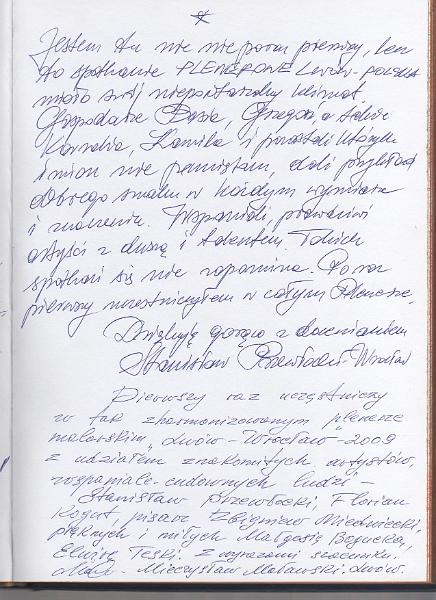 Jestem tu nie nie poraz pierwszy, lecz
to spotkanie PLENEROWE Lwów-POLSKA
miało swój niepowtarzalny klimat.
Gospodarze Basia, Grzegorz, a także
Kornelia, Kamila i pozostali których
imion nie pamiętam, dali przykład
dobrego smaku w każdym wymiarze
i znaczeniu. Wspaniali, prawdziwi
artyści z duszą i talentem. Takich
spotkań się nie zapomina. Po raz
pierwszy uczestniczyłem w całym Plenerze.
Dziękuję gorąco z docenianiem
Stanisław - Wrocław
Pierwszy raz uczęstniczy
w tak zharmonizowanym plenerze
malarskim, Lwów - Wrocław - 2009
z udziałem znakomitych artystów,
wspaniale-cudownych ludzi -
Stanisław, Florian
Kogut, pisarz Zbigniew,
pięknych i miłych Małgosię,
Elwirę. Z wyrazami szacunku.
Mieczysław Maławski. Lwów.